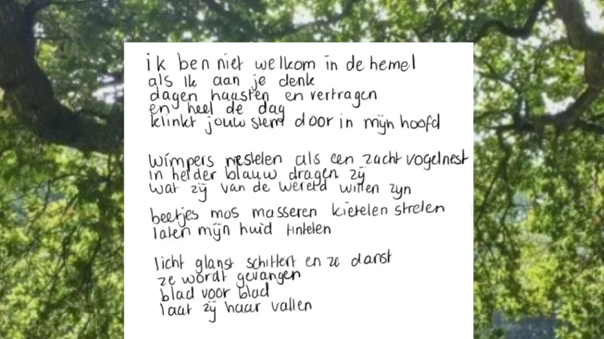 ik ben niet welkom in de hemel
als ik aan je denk
dagen haasten en vertragen
en heel de dag
klinkt jouw stem door in mijn hoofd
wimpers nestelen als een zacht vogelnest
in helder blauw dragen zij
wat zij van de wereld willen zijn
beetjes mos masseren kietelen strelen
laten mijn huid tintelen
licht glanst schittert en ze danst
ze wordt gevangen
blad voor blad
laat zij haar vallen